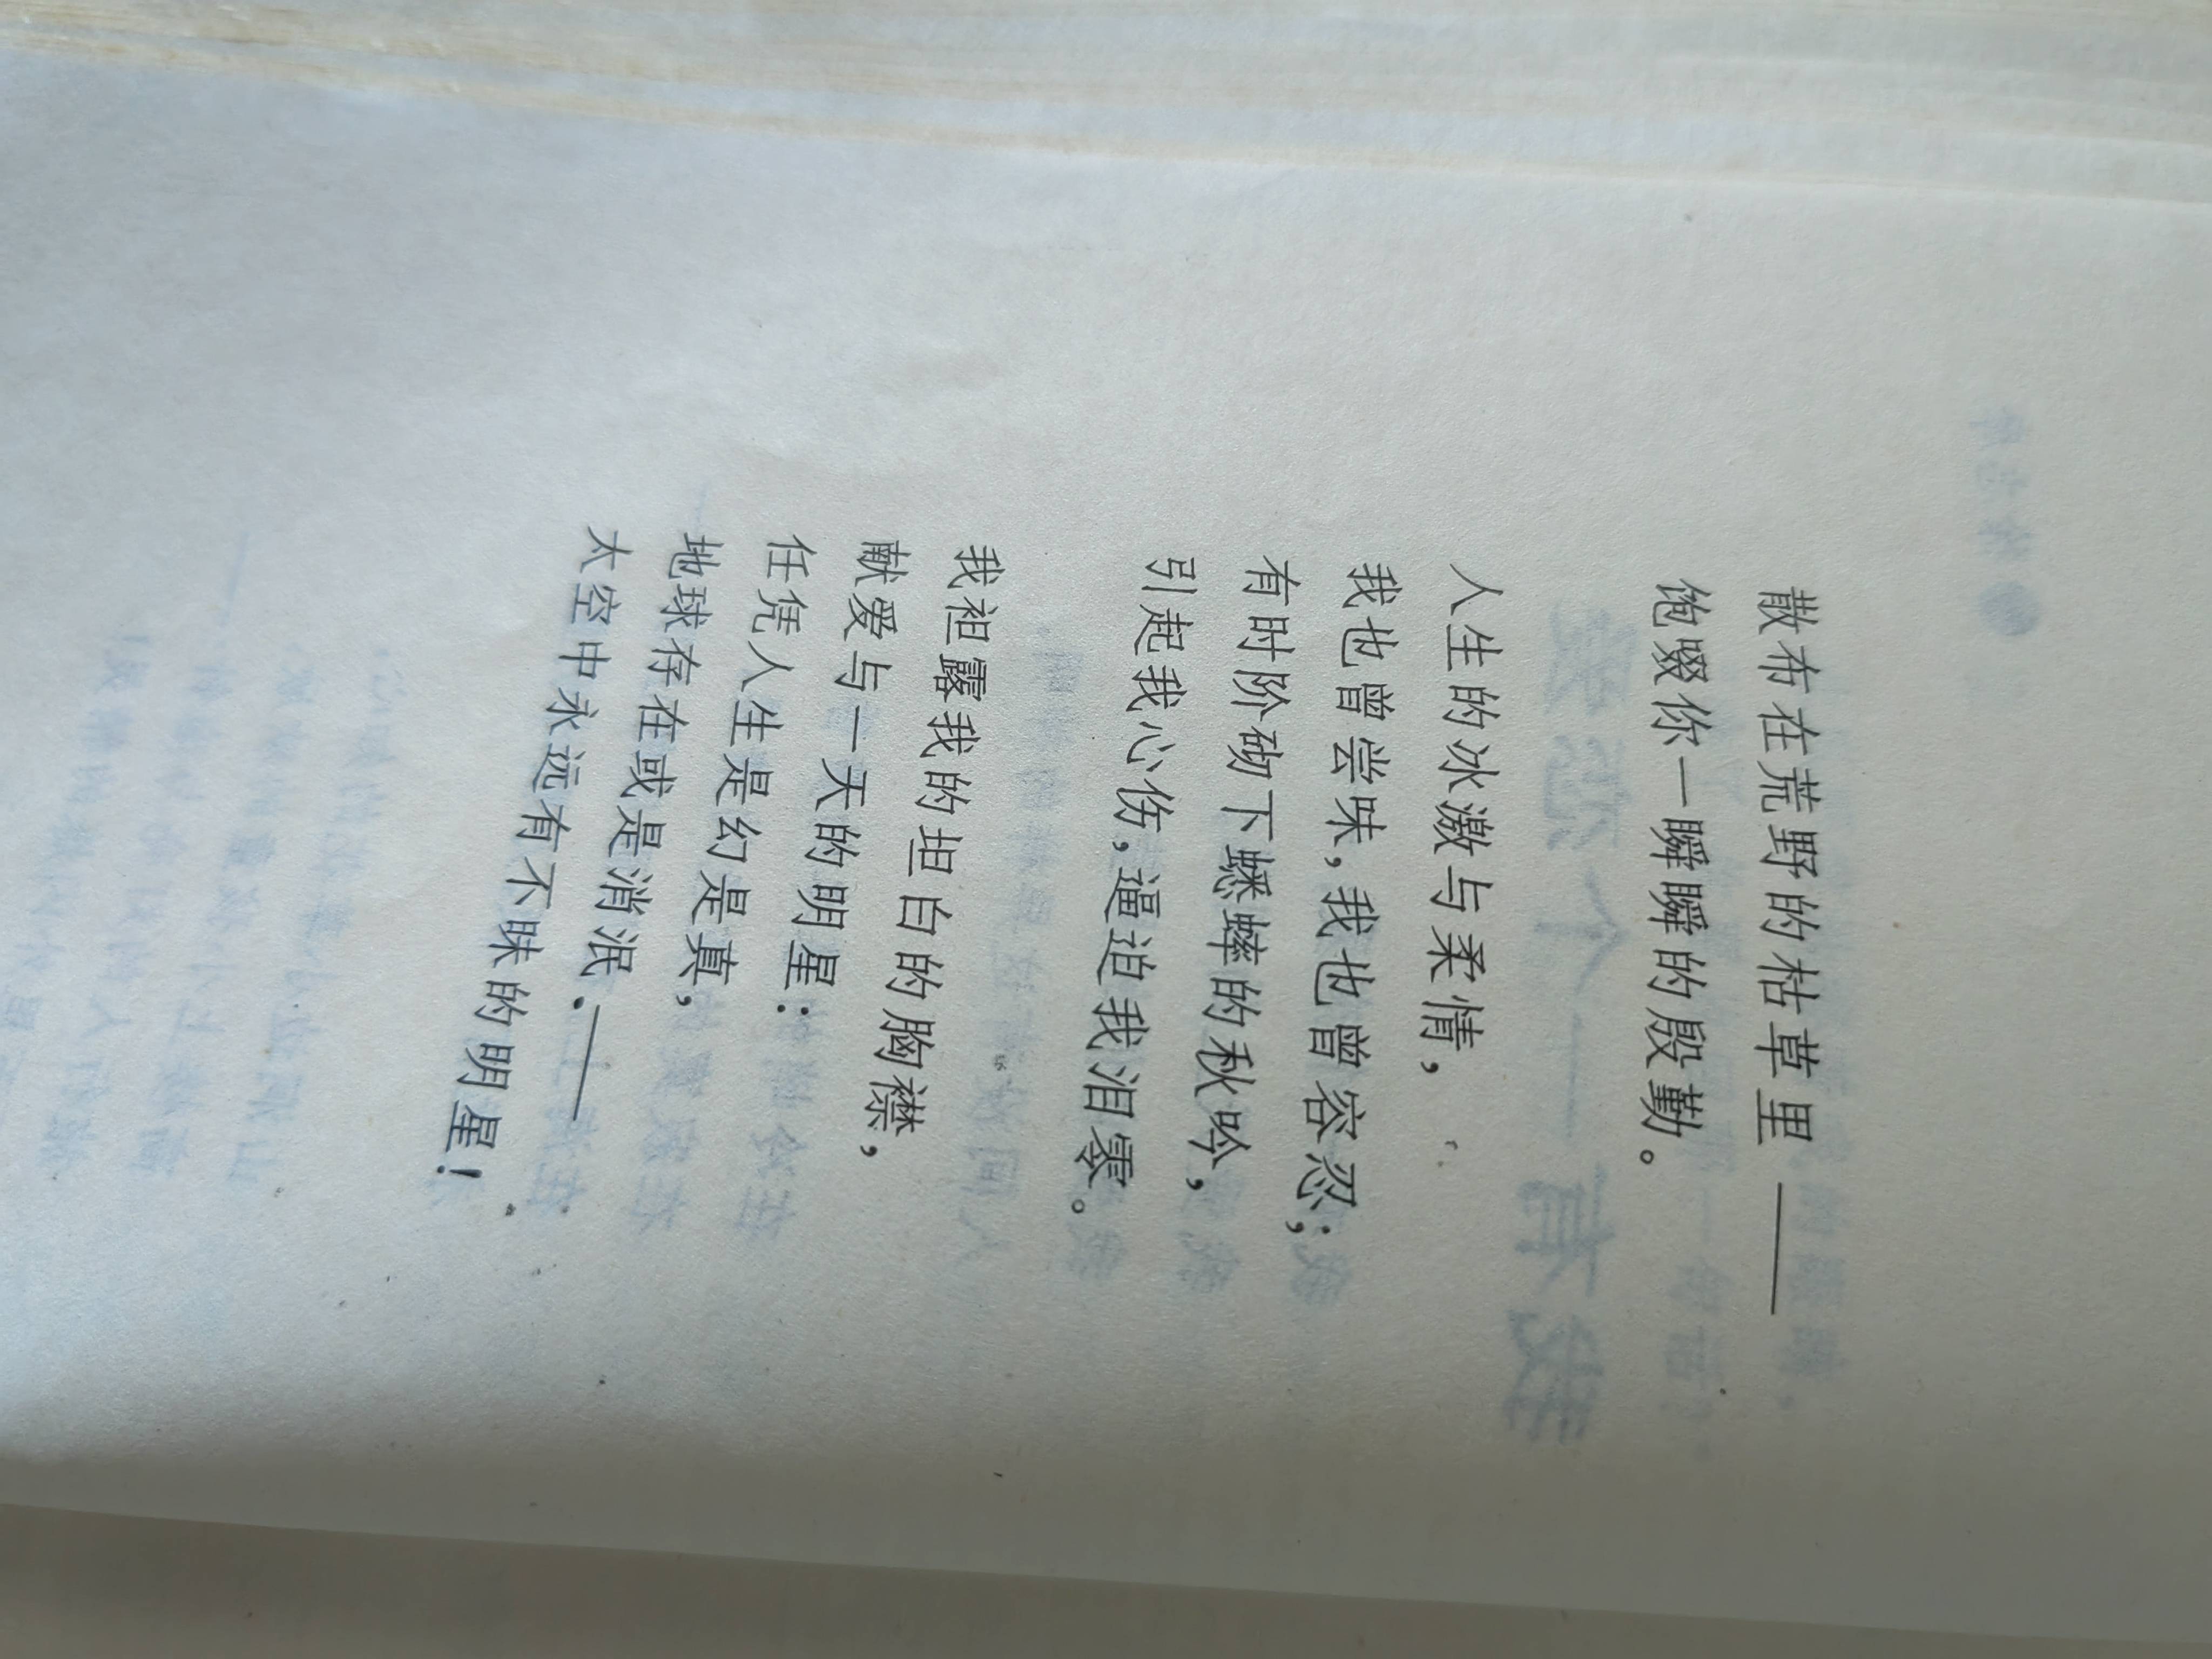 散布在荒野的枯草里——
饱啜你一瞬瞬的殷勤。
人生的冰激与柔情，
我也曾尝味，我也曾容忍；
有时阶砌下蟋蟀的秋吟，
引起我心伤，逼迫我泪零。
我袒露我的坦白的胸襟，
献爱与一天的明星：
任凭人生是幻是真，
地球存在或是消泯．——
太空中永远有不昧的明星！